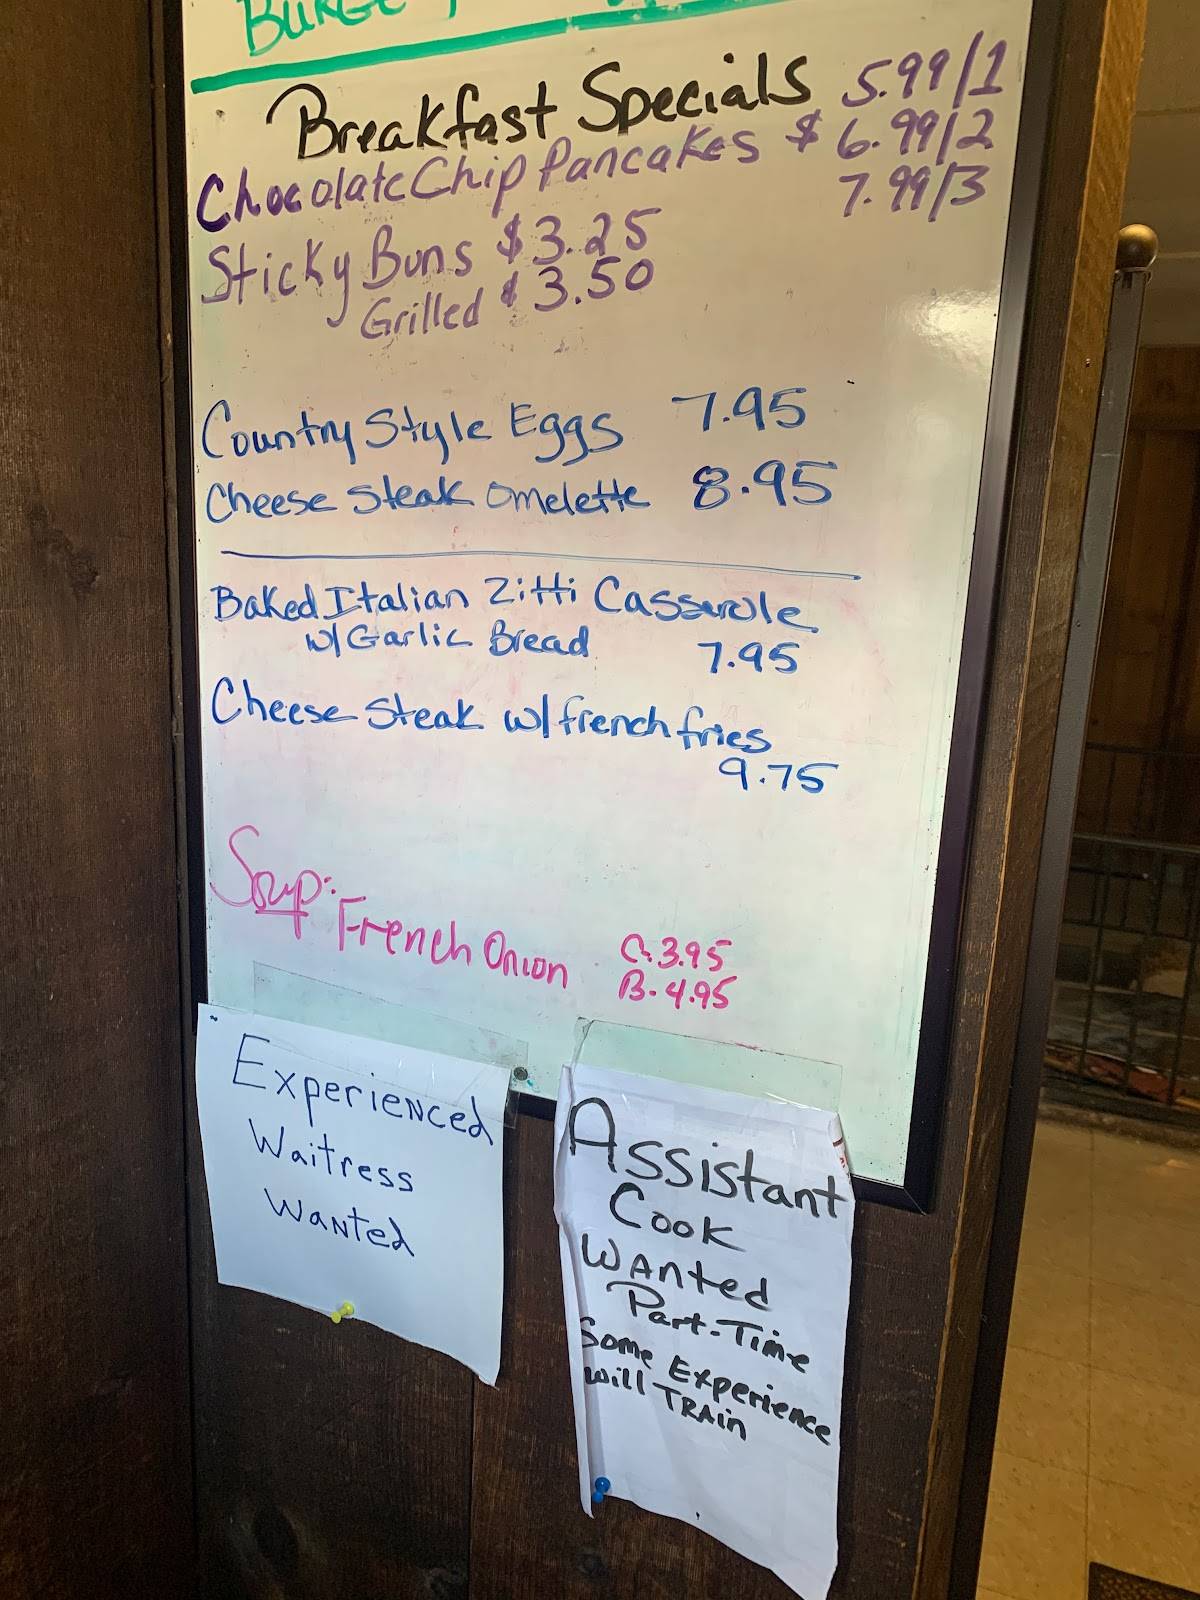 Breakfast Specials
Chocolate Chip Pancakes $ 5.99/1
6.99/2
7.99/3
Sticky Buns $3.25
Grilled $3.50
Country Style Eggs 7.95
Cheese Steak Omelette 8.95
Baked Italian Zitti Casserole
w/ Garlic Bread 7.95
Cheese Steak w/ french fries
9.75
Soup:
French Onion C. 3.95
B. 4.95
Experienced
Waitress
Wanted
Assistant
Cook
Wanted
Part-Time
Some Experience
Will TRAin